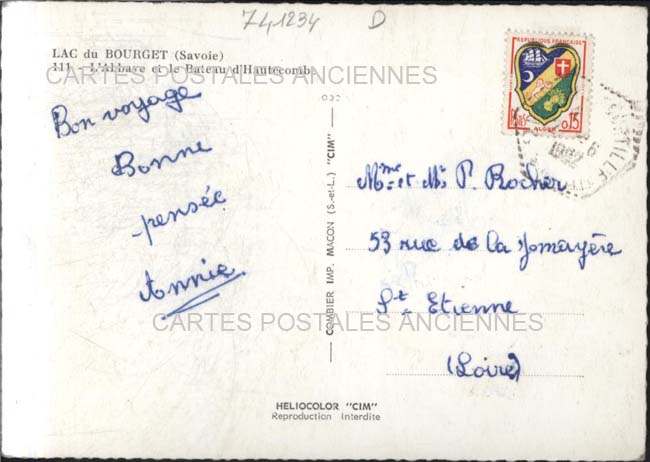 741234 D
LAC du BOURGET (Savoie)
111 - L'Abbaye et le Bateau d'Hautecombe
CARTES POSTALES ANCIENNES
Bon voyage
Bonne
pensée
Annie
COMBIER IMP. MACON (S.-et-L.) "CIM"
REPUBLIQUE FRANCAISE
POSTES 0,15
ALGER
Mme et Mr P. Rocher
53 rue de la Jomayère
St Etienne
(Loire)
CARTES POSTALES ANCIENNES
HELIOCOLOR "CIM"
Reproduction Interdite